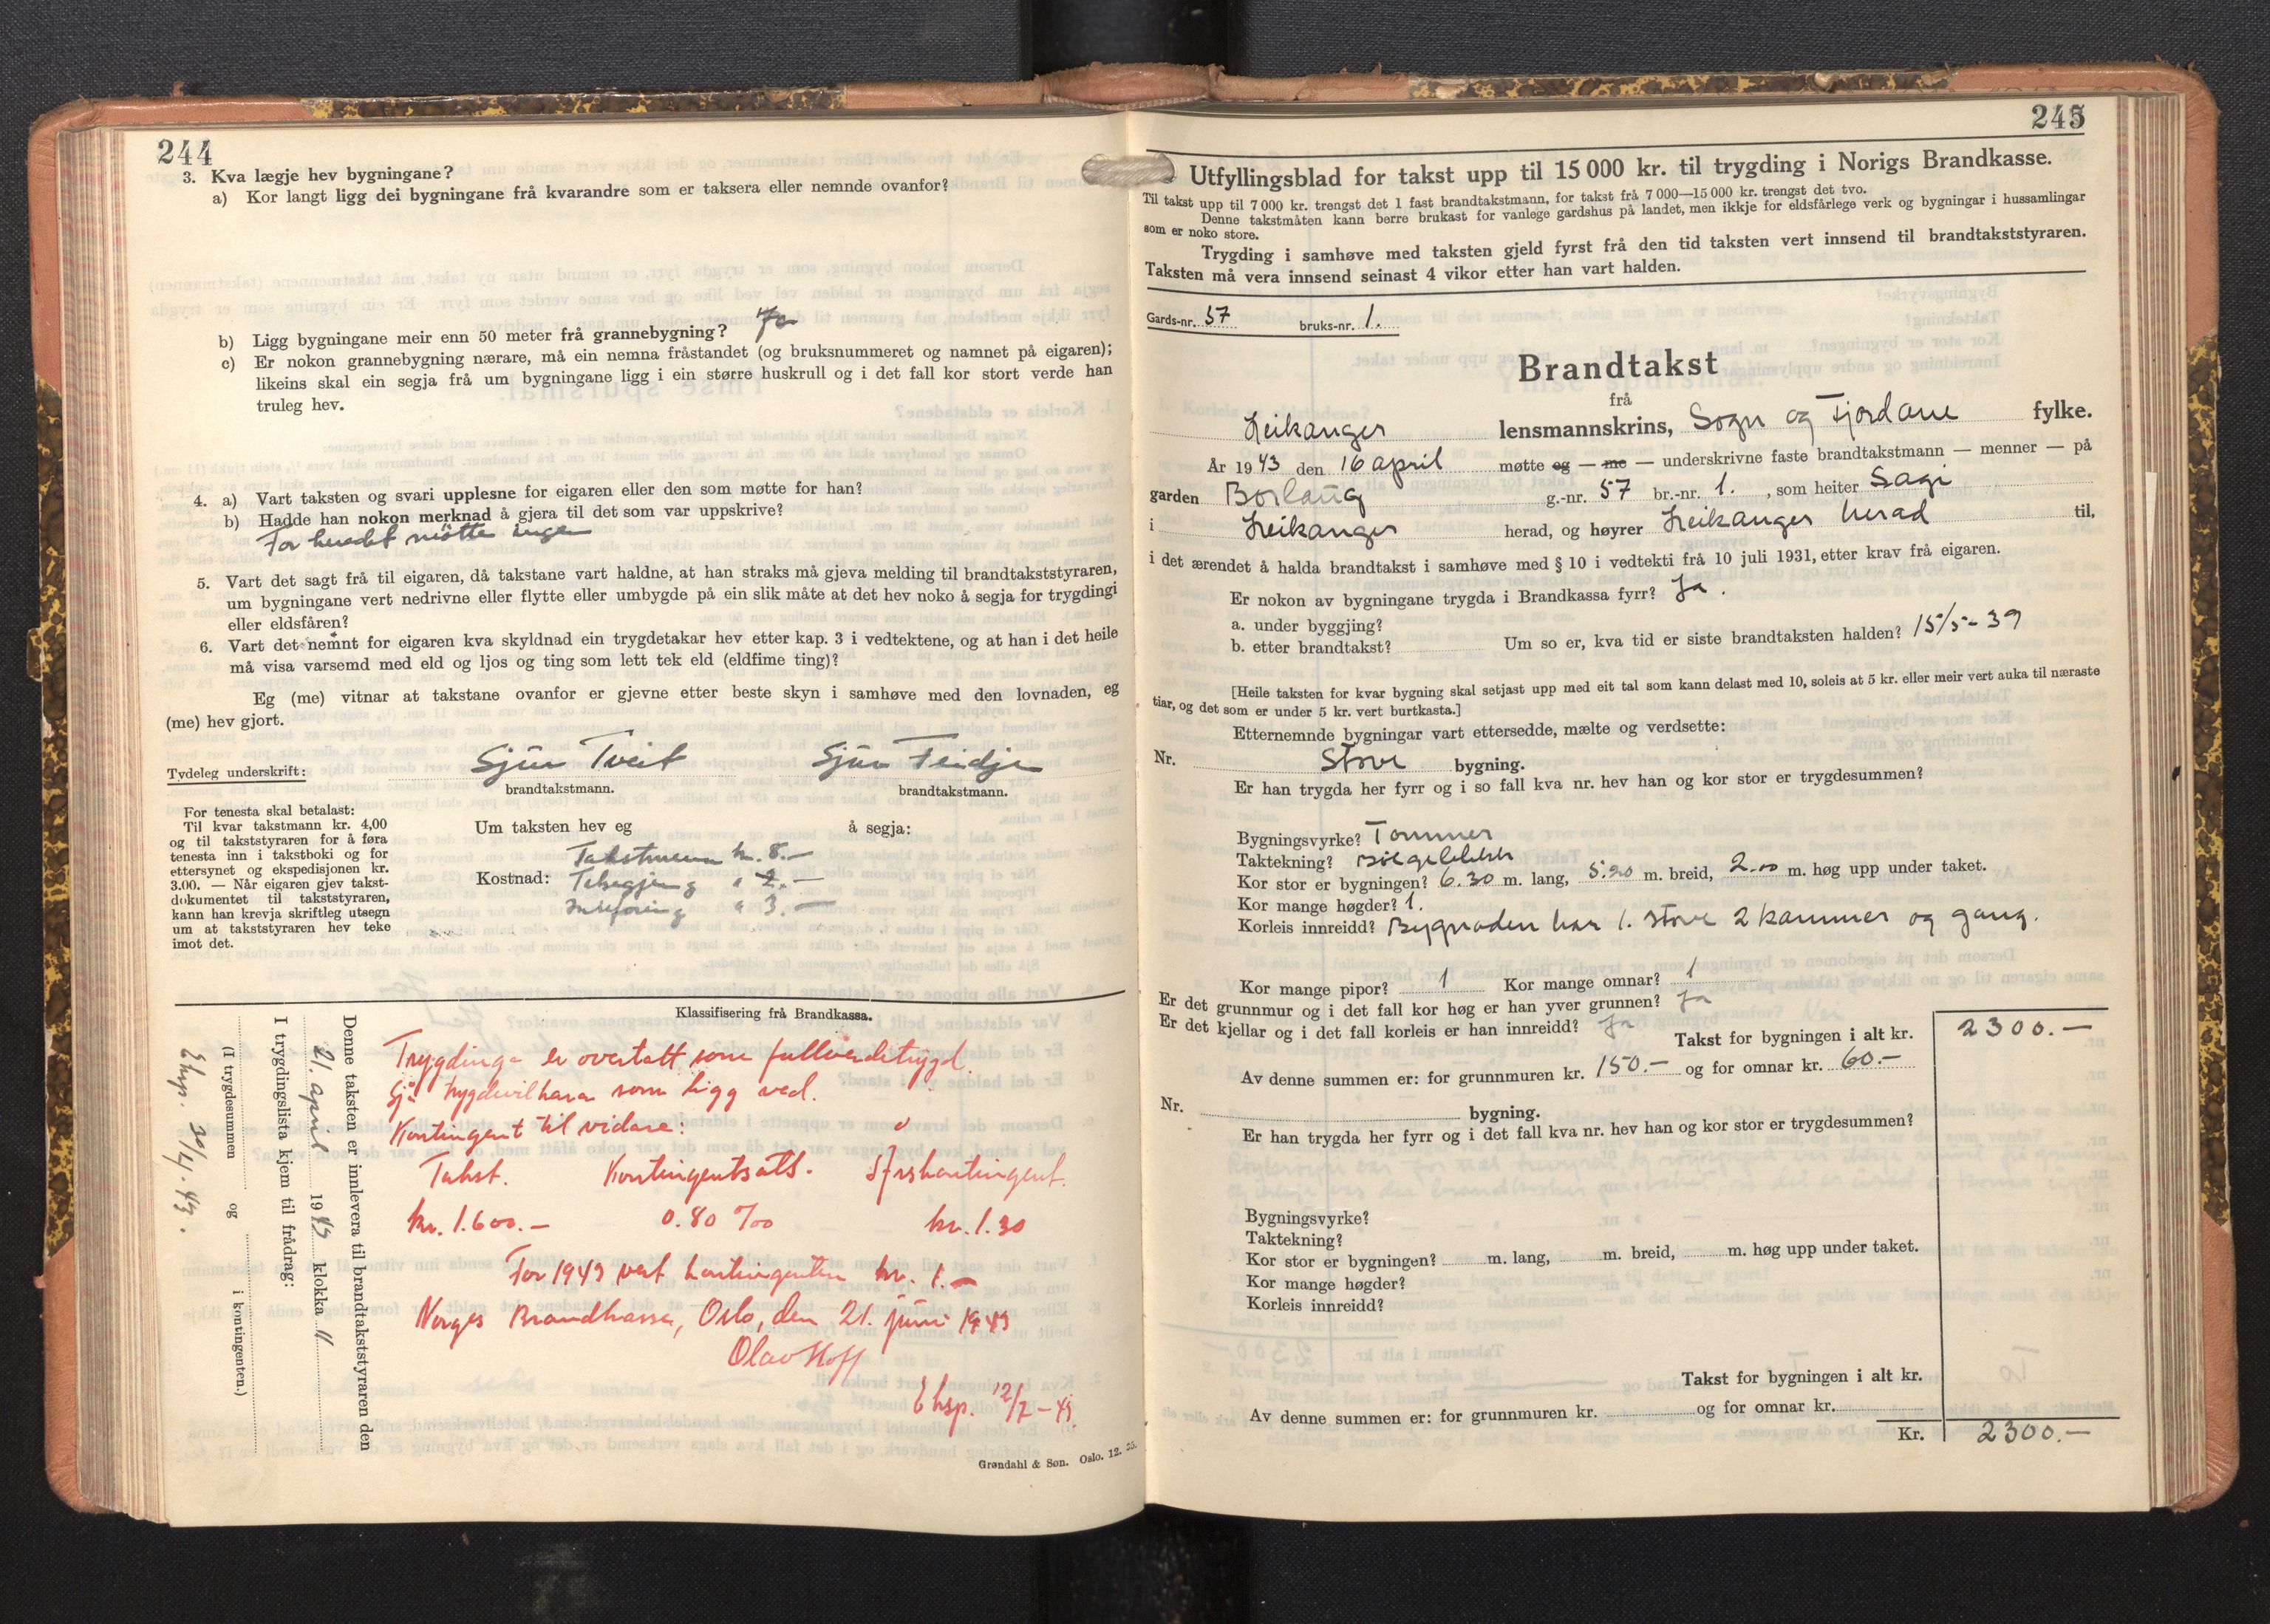 244
3. Kva lægje hev bygningane?
a) Kor langt ligg dei bygningane frå kvarandre som er taksera eller nemnde ovanfor?
b) Ligg bygningane meir enn 50 meter frå grannebygning? Ja
c) Er nokon grannebygning nærare, må ein nemna fråstandet (og bruksnummeret og namnet på eigaren);
likeins skal ein segja frå um bygningane ligg i ein større huskrull og i det fall kor stort verde han
truleg hev.
4. a) Vart taksten og svari upplesne for eigaren eller den som møtte for han?
b) Hadde han nokon merknad å gjera til det som var uppskrive?
For heradet møtte ingen
5. Vart det sagt frå til eigaren, då takstane vart haldne, at han straks må gjeva melding til brandtakststyraren,
um bygningane vert nedrivne eller flytte eller umbygde på ein slik måte at det hev noko å segja for trygdingi
eller eldsfåren?
6. Vart det nemnt for eigaren kva skyldnad ein trygdetakar hev etter kap. 3 i vedtektene, og at han i det heile
må visa varsemd med eld og ljos og ting som lett tek eld (eldfime ting)?
Eg (me) vitnar at takstane ovanfor er gjevne etter beste skyn i samhøve med den lovnaden, eg
(me) hev gjort.
Tydeleg underskrift: Sjür Tveit Sjür Feidje
brandtakstmann. brandtakstmann.
For tenesta skal betalast:
Til kvar takstmann kr. 4,00
og til takststyraren for å føra
tenesta inn i takstboki og for
ettersynet og ekspedisjonen kr.
3.00. — Når eigaren gjev takst-
dokumentet til takststyraren,
kann han krevja skriftleg utsegn
um at takststyraren hev teke
imot det.
Um taksten hev eg å segja:
Takstmenn kr. 8.—
Kostnad: Tilsegjing " 2.—
Innføring " 3.—
Klassifisering frå Brandkassa.
Trygdinga er overtatt som fullverdetrygd.
Sjå trygdevilkåra som ligg ved.
Kontingent til vidare:
Takst. Kontingentsats. Årskontingent.
kr. 1.600.— 0.80 ‰ kr. 1.30
For 1943 vert kontingenten kr. 1.—
Norges Brandkasse, Oslo, den 21. juni 1943
Olav Hoff
Eksp. 12/7-43.
Denne taksten er innlevera til brandtakststyraren den
21. april 1943 klokka 11
I trygdingslista kjem til frådrag:
(I trygdesummen og i kontingenten.)
Eksp. 30/4.43.
Grøndahl & Søn. Oslo. 12.
245
Utfyllingsblad for takst upp til 15 000 kr. til trygding i Norigs Brandkasse.
Til takst upp til 7 000 kr. trengst det 1 fast brandtakstmann, for takst frå 7 000—15 000 kr. trengst det tvo.
Denne takstmåten kann berre brukast for vanlege gardshus på landet, men ikkje for eldsfårlege verk og bygningar i hussamlingar
som er noko store.
Trygding i samhøve med taksten gjeld fyrst frå den tid taksten vert innsend til brandtakststyraren.
Taksten må vera innsend seinast 4 vikor etter han vart halden.
Gards-nr. 57 bruks-nr. 1.
Brandtakst
frå
Leikanger lensmannskrins, Sogn og Fjordane fylke.
År 1943 den 16 april møtte eg — me — underskrivne faste brandtakstmann — menner — på
garden Borlaug g.-nr. 57 br.-nr. 1. , som heiter Sagi
i Leikanger herad, og høyrer Leikanger herad til,
i det ærendet å halda brandtakst i samhøve med § 10 i vedtekti frå 10 juli 1931, etter krav frå eigaren.
Er nokon av bygningane trygda i Brandkassa fyrr? Ja.
a. under byggjing?
b. etter brandtakst? Um so er, kva tid er siste brandtaksten halden? 15/5-39
[Heile taksten for kvar bygning skal setjast upp med eit tal som kann delast med 10, soleis at 5 kr. eller meir vert auka til næraste
tiar, og det som er under 5 kr. vert burtkasta.]
Etternemnde bygningar vart ettersedde, mælte og verdsette:
Nr. Stove bygning.
Er han trygda her fyrr og i so fall kva nr. hev han og kor stor er trygdesummen?
Bygningsvyrke? Tømmer
Taktekning? Bølgeblikk
Kor stor er bygningen? 6.30 m. lang, 5.20 m. breid, 2.00 m. høg upp under taket.
Kor mange høgder? 1.
Korleis innreidd? Bygnaden har 1. stove 2 kammer og gang.
Kor mange pipor? 1 Kor mange omnar? 1
Er det grunnmur og i det fall kor høg er han yver grunnen? Ja
Er det kjellar og i det fall korleis er han innreidd? Ja
Takst for bygningen i alt kr. 2300.—
Av denne summen er: for grunnmuren kr. 150.— og for omnar kr. 60.—
Nr. bygning.
Er han trygda her fyrr og i det fall kva nr. hev han og kor stor er trygdesummen?
Bygningsvyrke?
Taktekning?
Kor stor er bygningen? m. lang, m. breid, m. høg upp under taket.
Kor mange høgder?
Korleis innreidd?
Takst for bygningen i alt kr.
Av denne summen er: for grunnmuren kr. og for omnar kr.
Kr. 2300.—